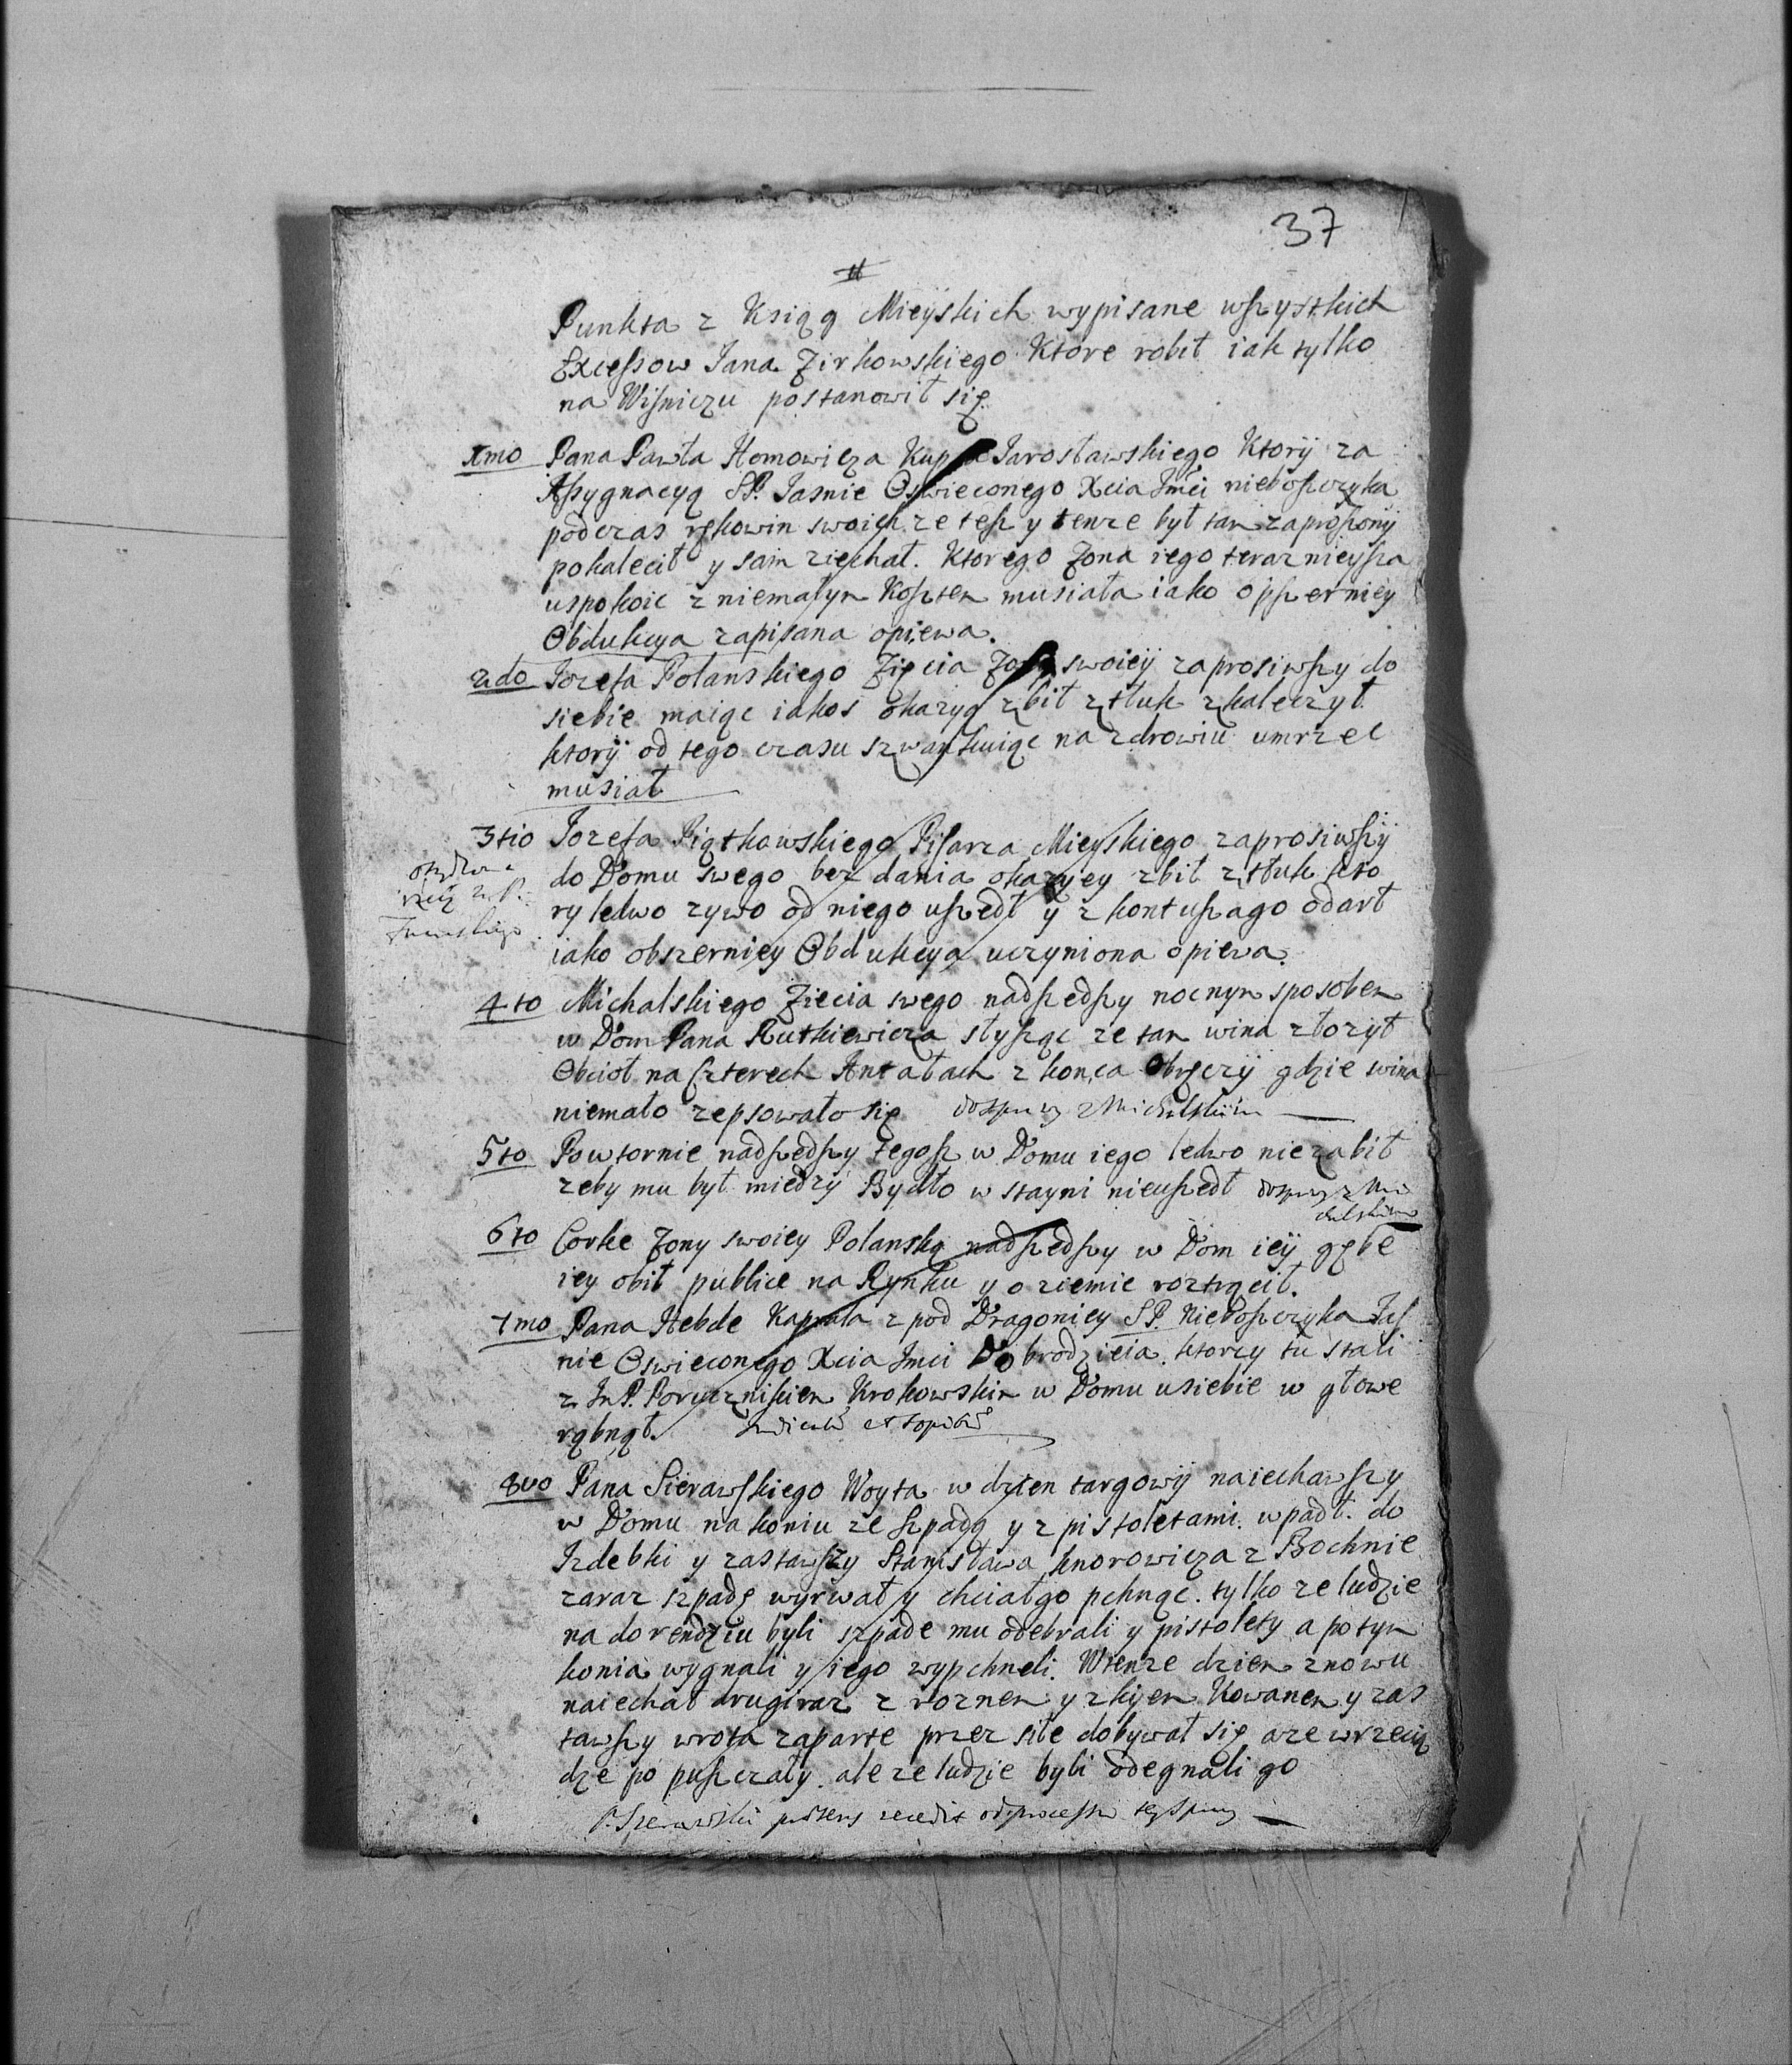 37
Punkta z Ksiąg Mieyskich wypisane wszystkich
Excessow Jana Zirkowskiego Ktore robił iak tylko
na Wiśniczu postanowił się
1mo Pana Pawła Homowicza Kupca Jarosławskiego Ktorÿ za
Assygnacyą SP. Jasnie Oswieconego Xcia Jmci nieboszczyka
podczas rękowin swoich ze tesz y tenze był tam zaproszonÿ
pokalecił y sam ziechał. Ktorego Zona iego teraznieysza
uspokoic z niemałym Kosztem musiała iako opszerniey
Obdukcya zapisana opiewa.
2do Jozefa Polanskiego Zięcia Zony swoieÿ zaprosiwszy do
siebie maiąc iakos okazyą zbił ztłuk zkaleczył
ktorÿ od tego czasu szwankuiąc na zdrowiu umrzec
musiał
3tio Jozefa Piątkowskiego Pisarza Mieyskiego zaprosiwszÿ
do Domu swego bez dania okazyey zbił ztłuk kto
ry ledwo zywo od niego uszedł y z kontusza go odarł
iako obszerniey Obdukcya uczyniona opiewa.
4to Michalskiego Ziecia swego nadszedszy nocnym sposobem
w Dom Pana Rutkiewicza słysząc ze tam wina złozył
Obcioł na Czterech Antałach z konca Obręczÿ gdzie wina
niemało zepsowało się z Michalskim
5to Powtornie nadszedszy tegosz w Domu iego ledwo nie zabił
zeby mu był miedzÿ Bydło w stayni nieuszedł z Mi
chalskim
6to Corke Zony swoiey Polanską nadszedszy w Dom ieÿ gębe
iey obił publice na Rynku y o ziemie roztrącił.
7mo Pana Hebde Kaprala z pod Dragoniey SP. Nieboszczyka Jas
nie Oswieconego Xcia Jmci Dobrodzieia ktorzy tu stali
z Jm P. Porucznikiem Krokowskim w Domu u siebie w głowe
rąbnął. et sopitum
8vo Pana Sierawskiego Woyta w dzien targowÿ naiechawszy
w Domu na koniu ze szpadą y z pistoletami wpadł do
Izdebki y zastawszy Stanisława Knorowicza z Bochnie
zaraz szpadę wyrwał y chciał go pchnąc. tylko ze ludzie
na dorendziu byli szpade mu odebrali y pistolety a potym
konia wygnali y iego wypchneli. Wtenze dzien znowu
naiechał drugi raz z roznem y z kijem Kowanem y zas
tawszy wrota zaparte przez siłe dobywał się aze wrzecią
dze popuszczały. ale ze ludzie byli odegnali go